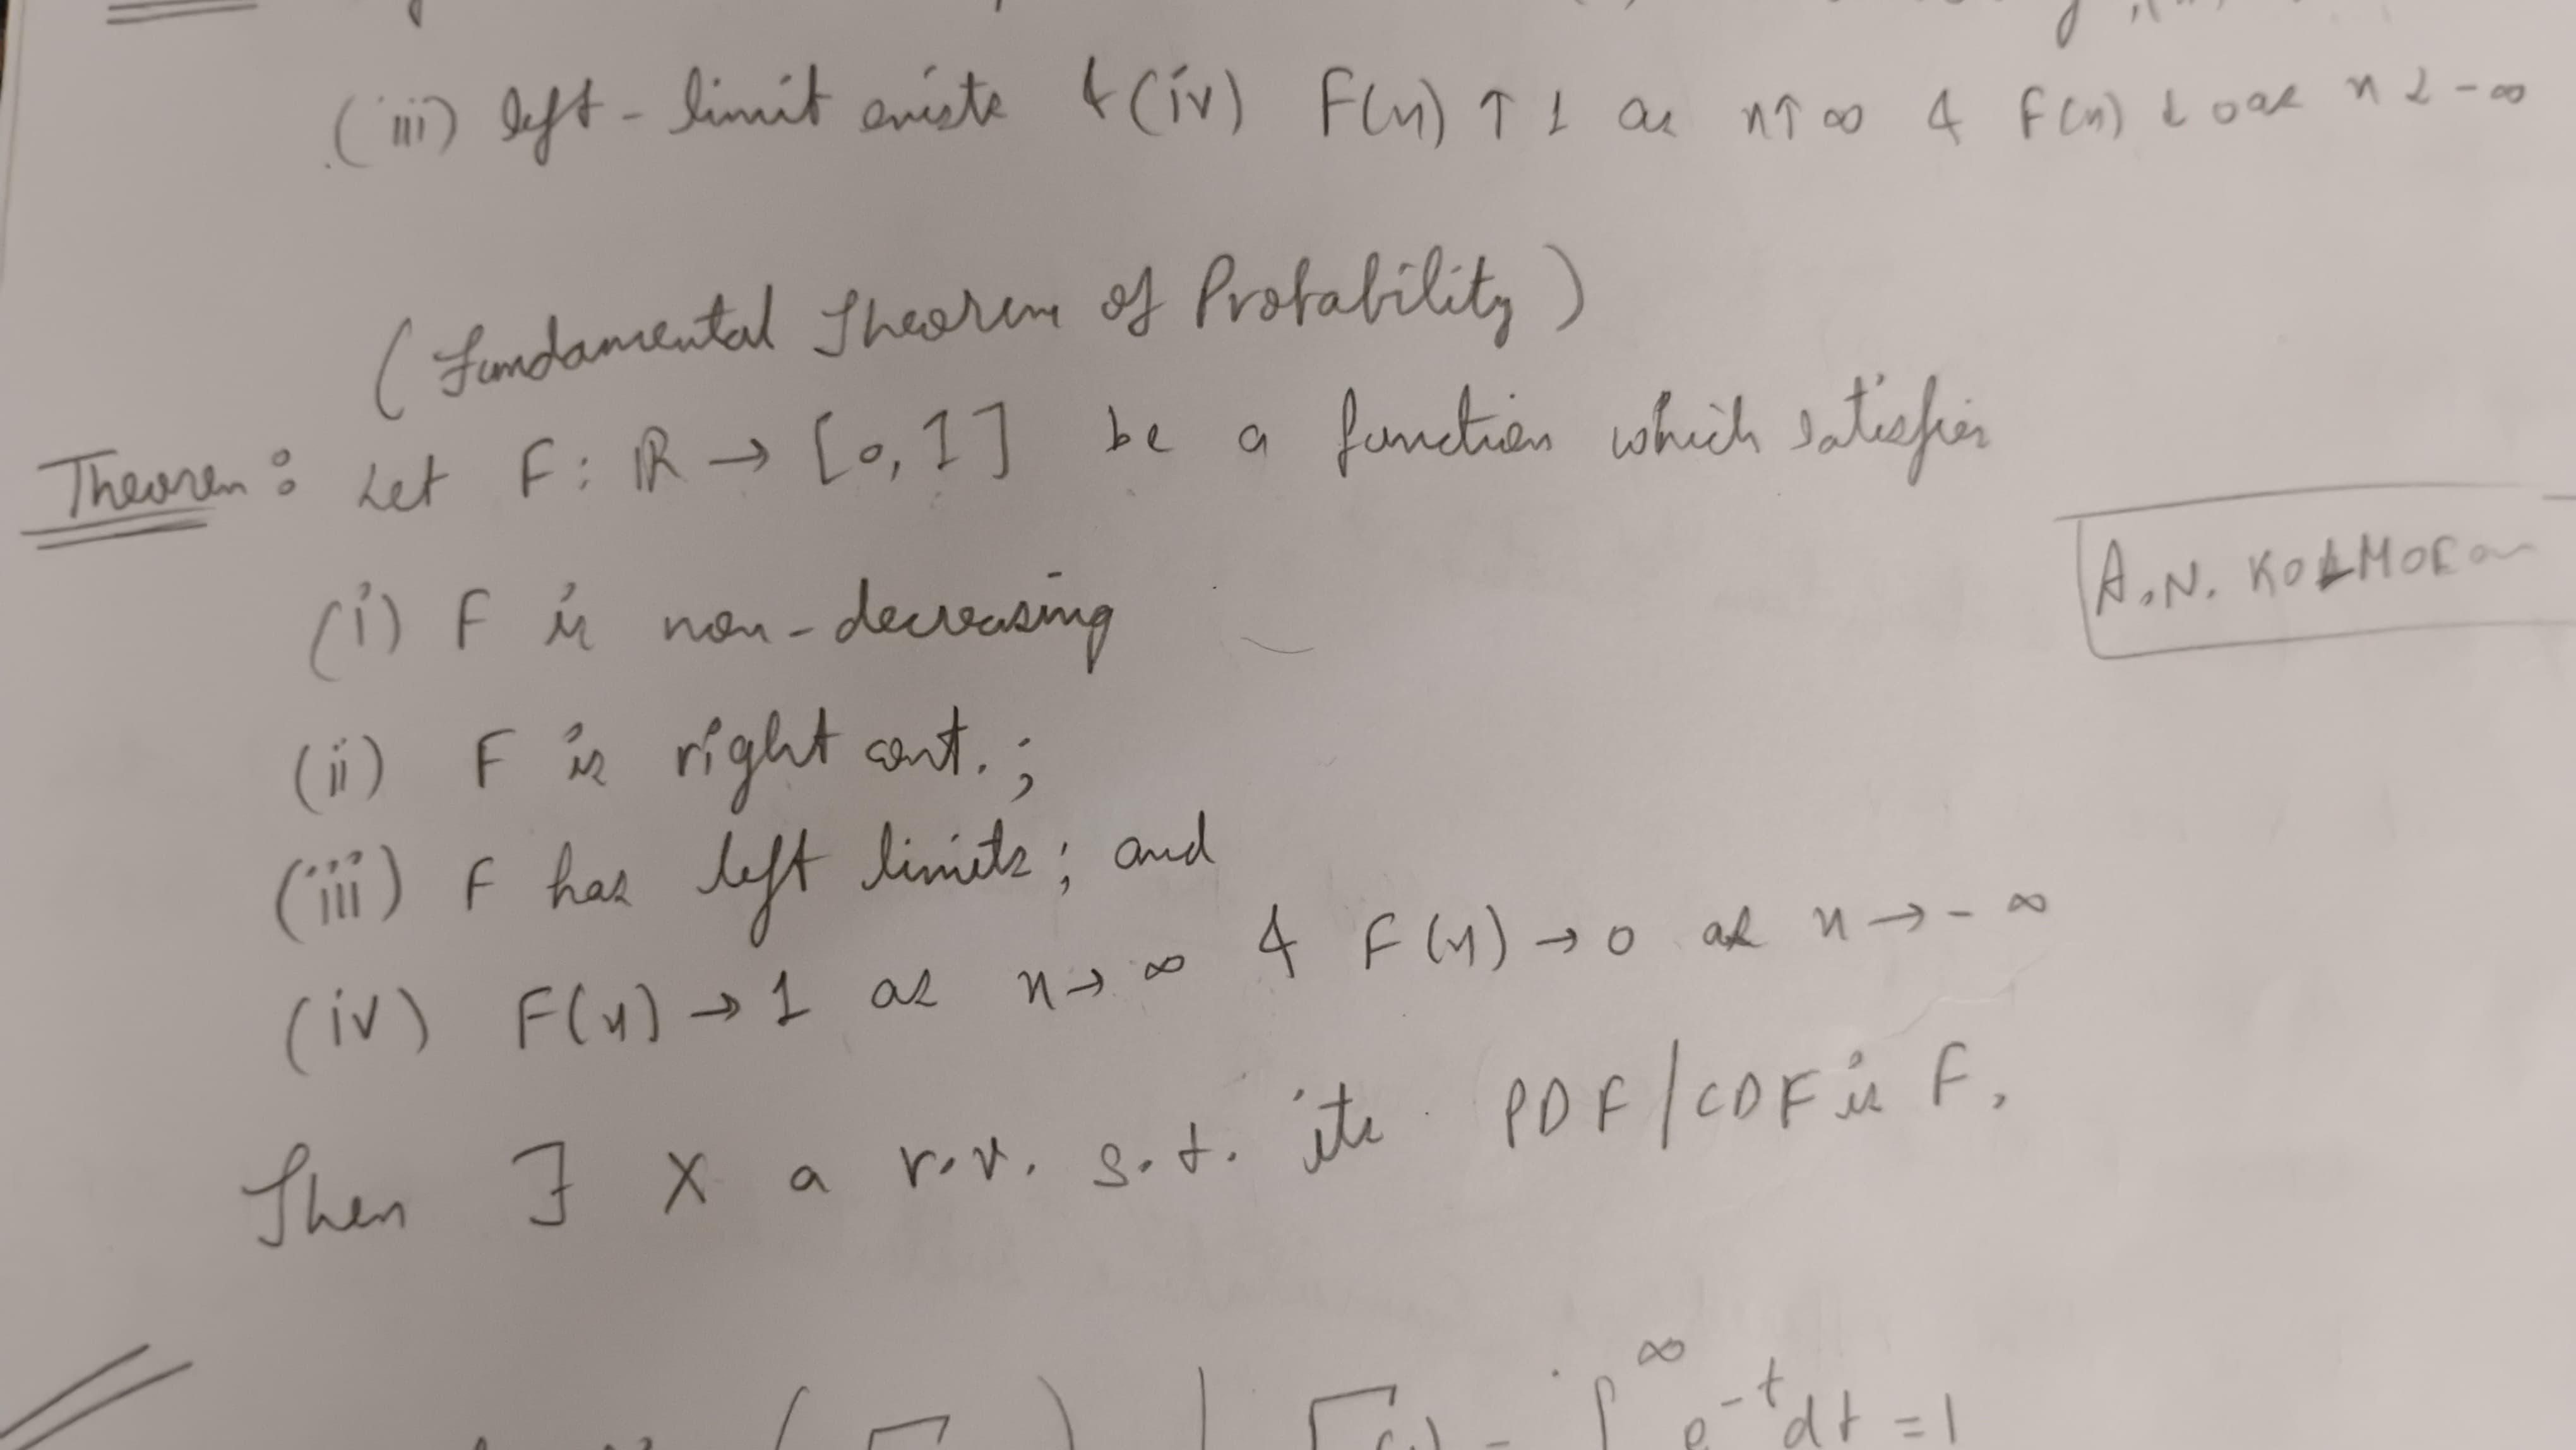 (iii) left-limit exists & (iv) F(x) ↑ 1 as x↑ ∞ & F(x) ↓ 0 as x ↓ -∞
(Fundamental Theorem of Probability)
Theorem: Let F: ℝ → [0,1] be a function which satisfies
A.N. KOLMOG
(i) F is non-decreasing
(ii) F is right cont.;
(iii) F has left limits; and
(iv) F(x) → 1 as x → ∞ & F(x) → 0 as x → -∞
Then ∃ X a r.v. s.t. its PDF/CDF is F.
∫ ∞ e^{-t} dt = 1